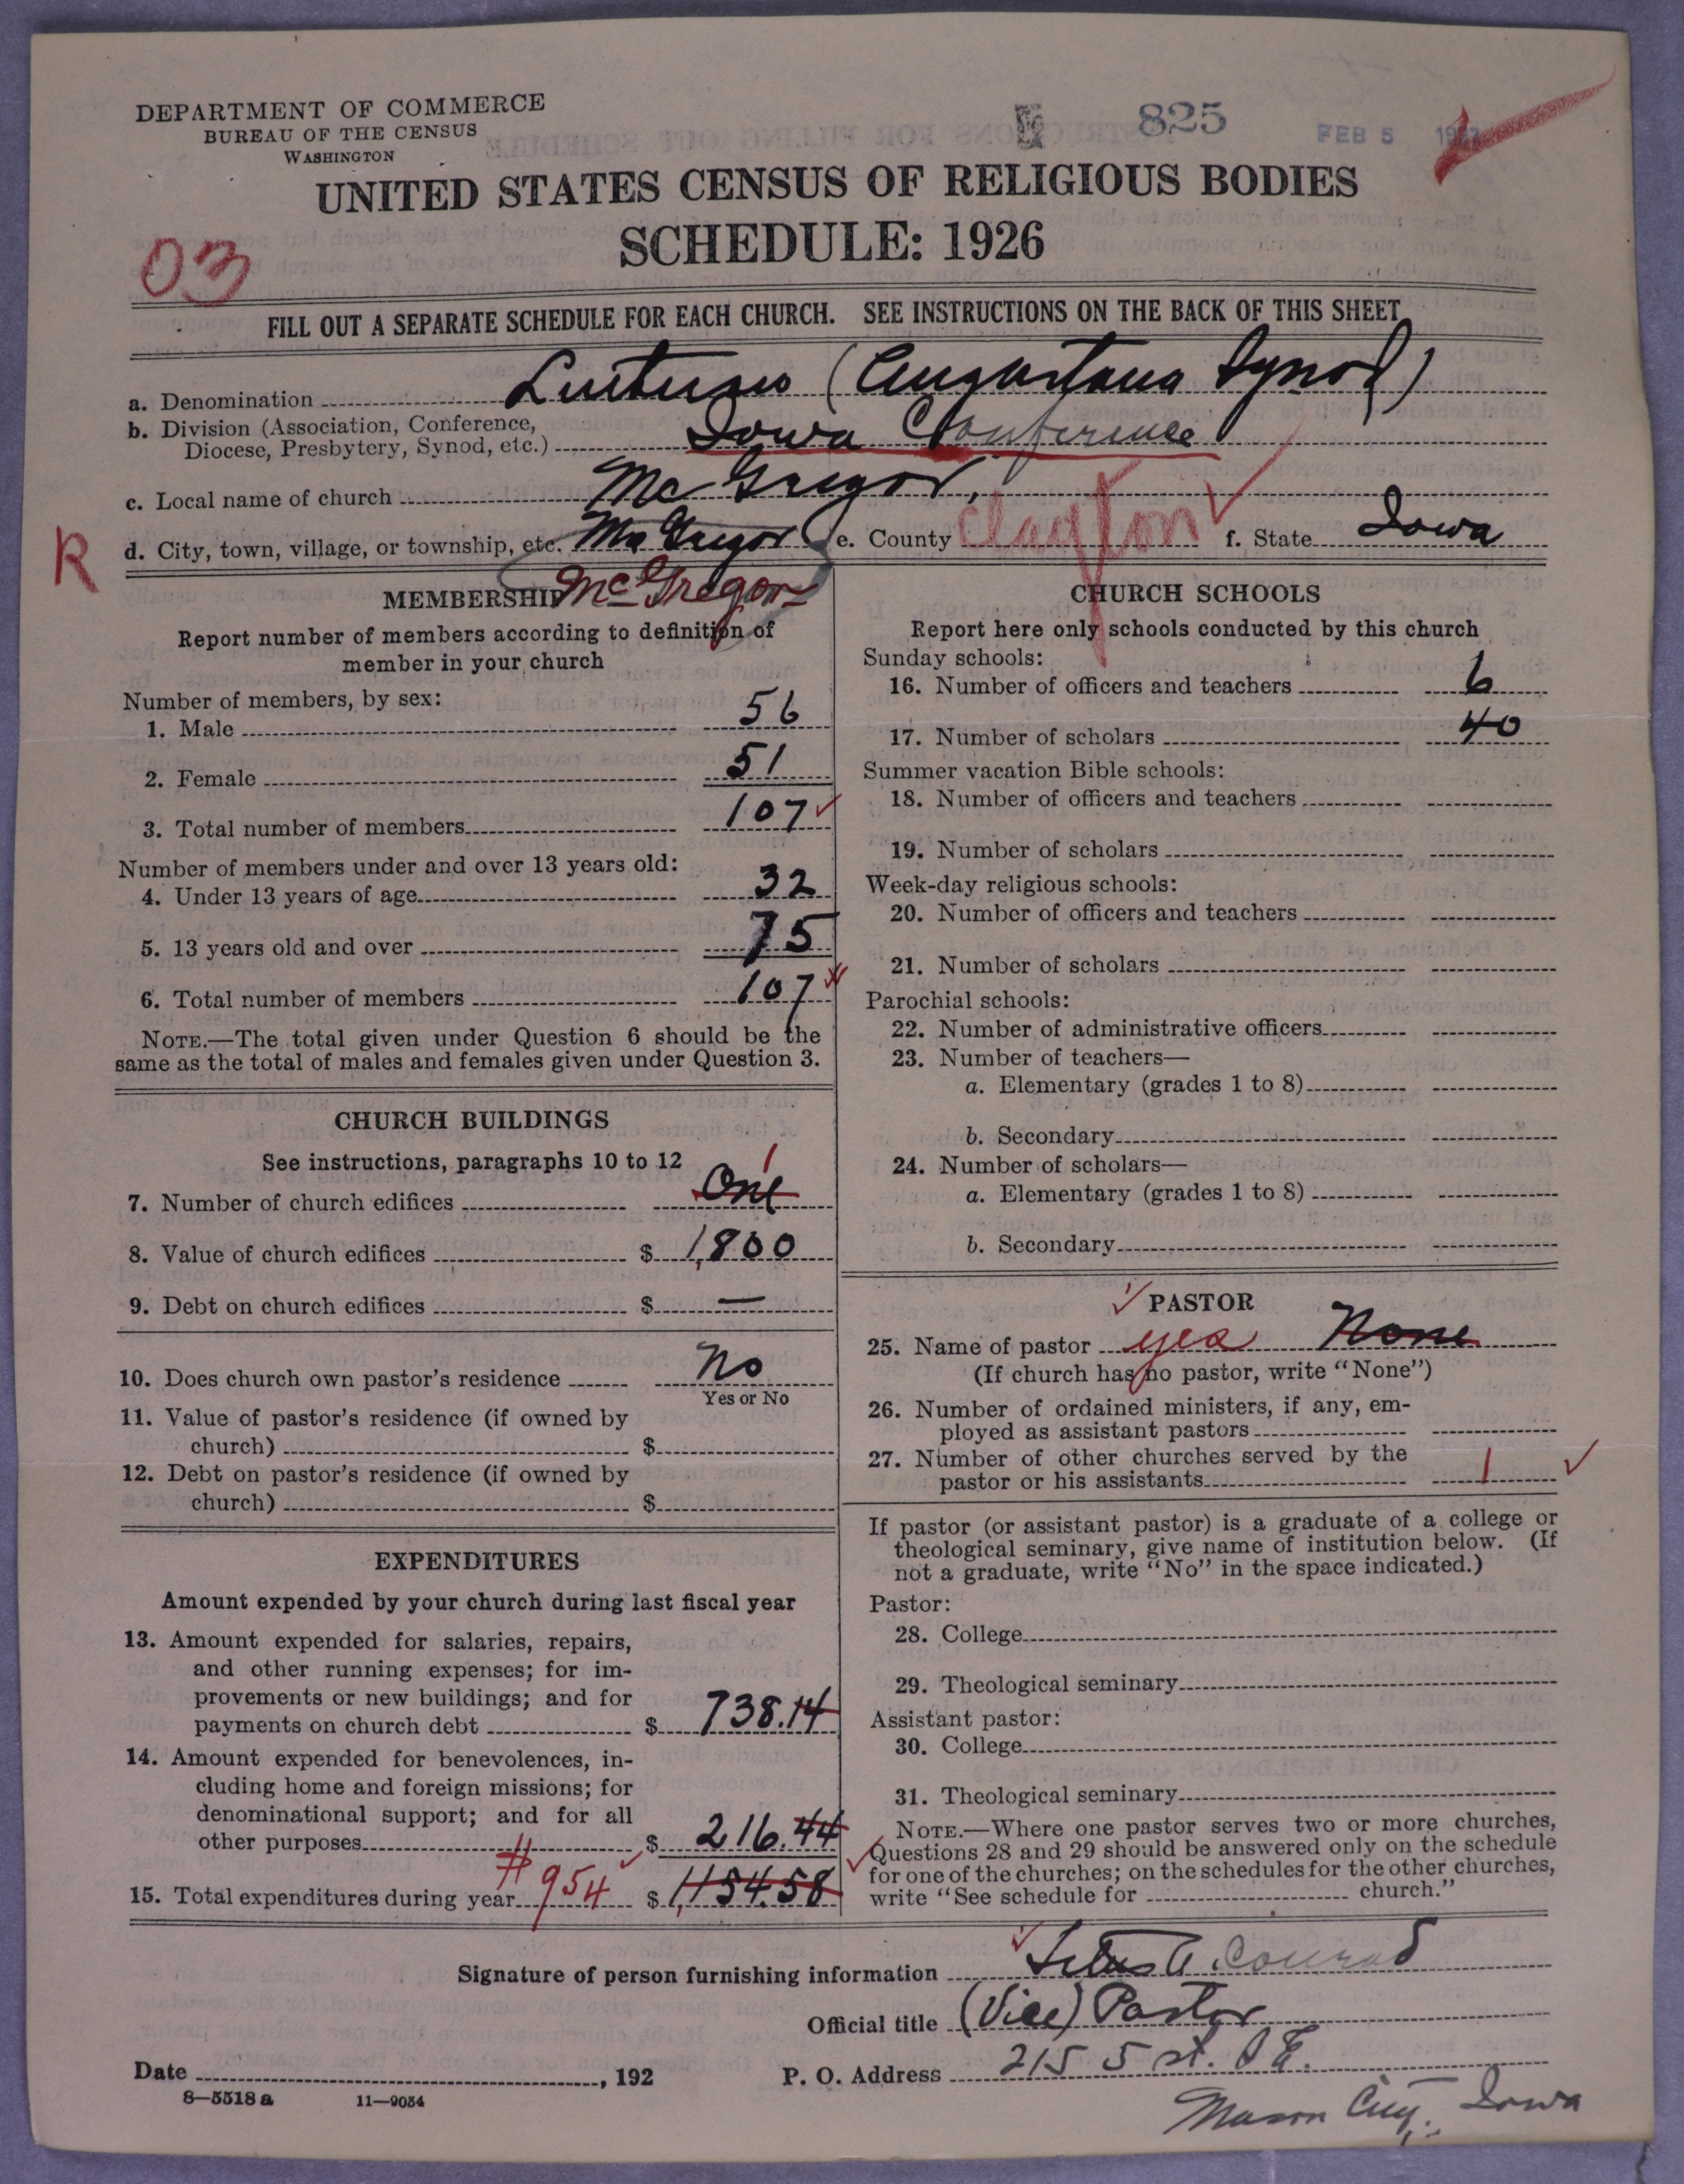 DEPARTMENT OF COMMERCE
BUREAU OF THE CENSUS
WASHINGTON
825
FEB 5 1927
UNITED STATES CENSUS OF RELIGIOUS BODIES
SCHEDULE: 1926
03
FILL OUT A SEPARATE SCHEDULE FOR EACH CHURCH. SEE INSTRUCTIONS ON THE BACK OF THIS SHEET
a. Denomination Lutheran (Augustana Synod)
b. Division (Association, Conference,
Diocese, Presbytery, Synod, etc.) Iowa Conference
c. Local name of church McGregor,
R
d. City, town, village, or township, etc. McGregor e. County Clayton f. State Iowa
McGregor
MEMBERSHIP
Report number of members according to definition of
member in your church
Number of members, by sex:
1. Male 56
2. Female 51
3. Total number of members 107
Number of members under and over 13 years old:
4. Under 13 years of age 32
5. 13 years old and over 75
6. Total number of members 107
NOTE.—The total given under Question 6 should be the
same as the total of males and females given under Question 3.
CHURCH BUILDINGS
See instructions, paragraphs 10 to 12
7. Number of church edifices One 1
8. Value of church edifices $ 1,800
9. Debt on church edifices $ —
10. Does church own pastor's residence No
Yes or No
11. Value of pastor's residence (if owned by
church) $
12. Debt on pastor's residence (if owned by
church) $
EXPENDITURES
Amount expended by your church during last fiscal year
13. Amount expended for salaries, repairs,
and other running expenses; for im-
provements or new buildings; and for
payments on church debt $ 738.14
14. Amount expended for benevolences, in-
cluding home and foreign missions; for
denominational support; and for all
other purposes $ 216.44
15. Total expenditures during year # 954 $ 1,154.58
CHURCH SCHOOLS
Report here only schools conducted by this church
Sunday schools:
16. Number of officers and teachers 6
17. Number of scholars 40
Summer vacation Bible schools:
18. Number of officers and teachers
19. Number of scholars
Week-day religious schools:
20. Number of officers and teachers
21. Number of scholars
Parochial schools:
22. Number of administrative officers
23. Number of teachers—
a. Elementary (grades 1 to 8)
b. Secondary
24. Number of scholars—
a. Elementary (grades 1 to 8)
b. Secondary
PASTOR
25. Name of pastor yes None
(If church has no pastor, write "None")
26. Number of ordained ministers, if any, em-
ployed as assistant pastors
27. Number of other churches served by the
pastor or his assistants 1
If pastor (or assistant pastor) is a graduate of a college or
theological seminary, give name of institution below. (If
not a graduate, write "No" in the space indicated.)
Pastor:
28. College
29. Theological seminary
Assistant pastor:
30. College
31. Theological seminary
NOTE.—Where one pastor serves two or more churches,
Questions 28 and 29 should be answered only on the schedule
for one of the churches; on the schedules for the other churches,
write "See schedule for church."
Signature of person furnishing information Titus A. Conrad
Official title (Vice) Pastor
Date , 192
P. O. Address 215 5 st. S E.
Mason City, Iowa
8—5518 a 11—9054